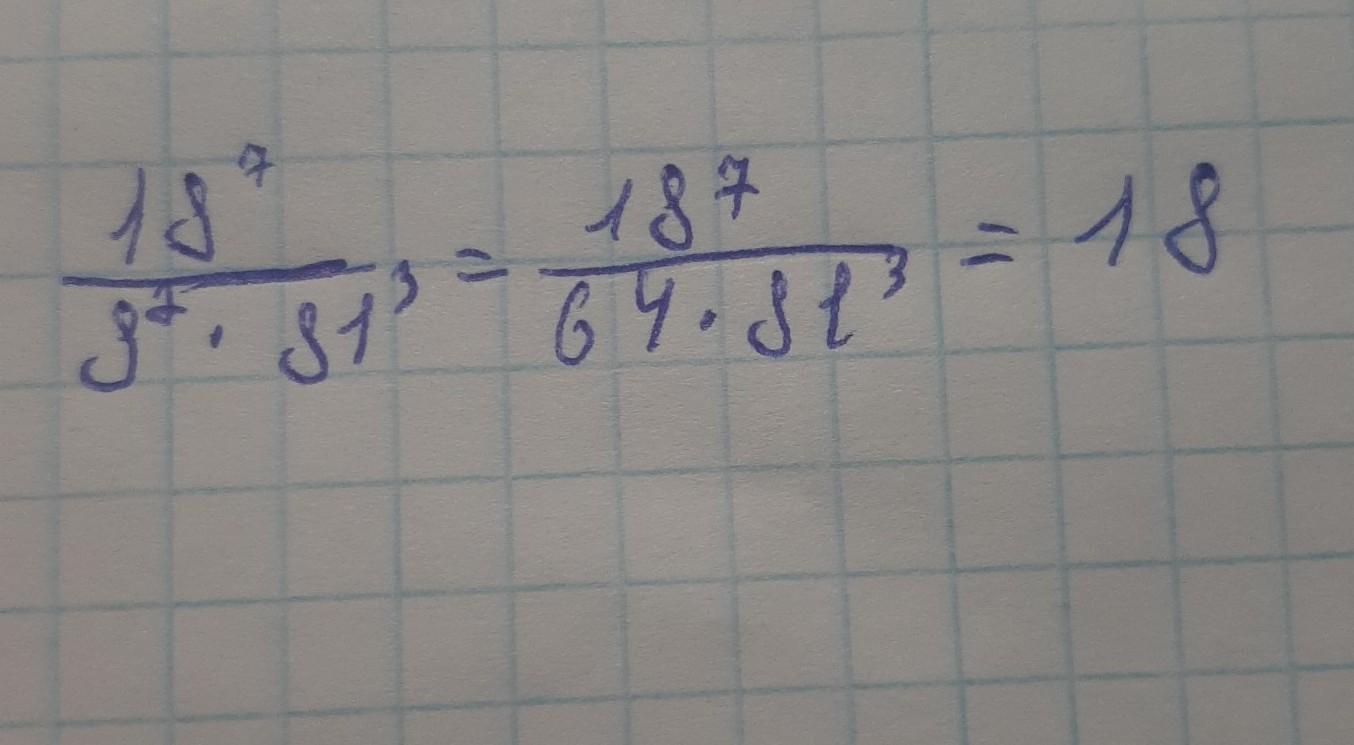 18⁷/(8² · 81³) = 18⁷/(64 · 81³) = 18